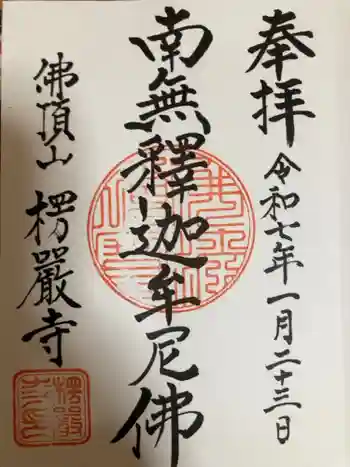 奉拝
令和七年一月二十三日
南無釋迦牟尼佛
佛頂山
楞嚴寺